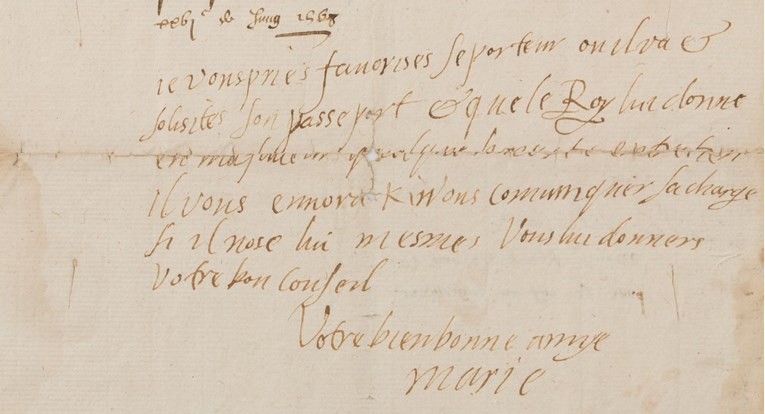 xxvj.e de Jung 1568
ie vous pries favorises se porteur ou il va &
solisites son passeport & que le Roy lui donne
en ma faveur quelque
il vous envora & vous comuniquer sa charge
si il nose lui mesmes vous lui donners
votre bon conseil
Votre bien bonne amye
Marie